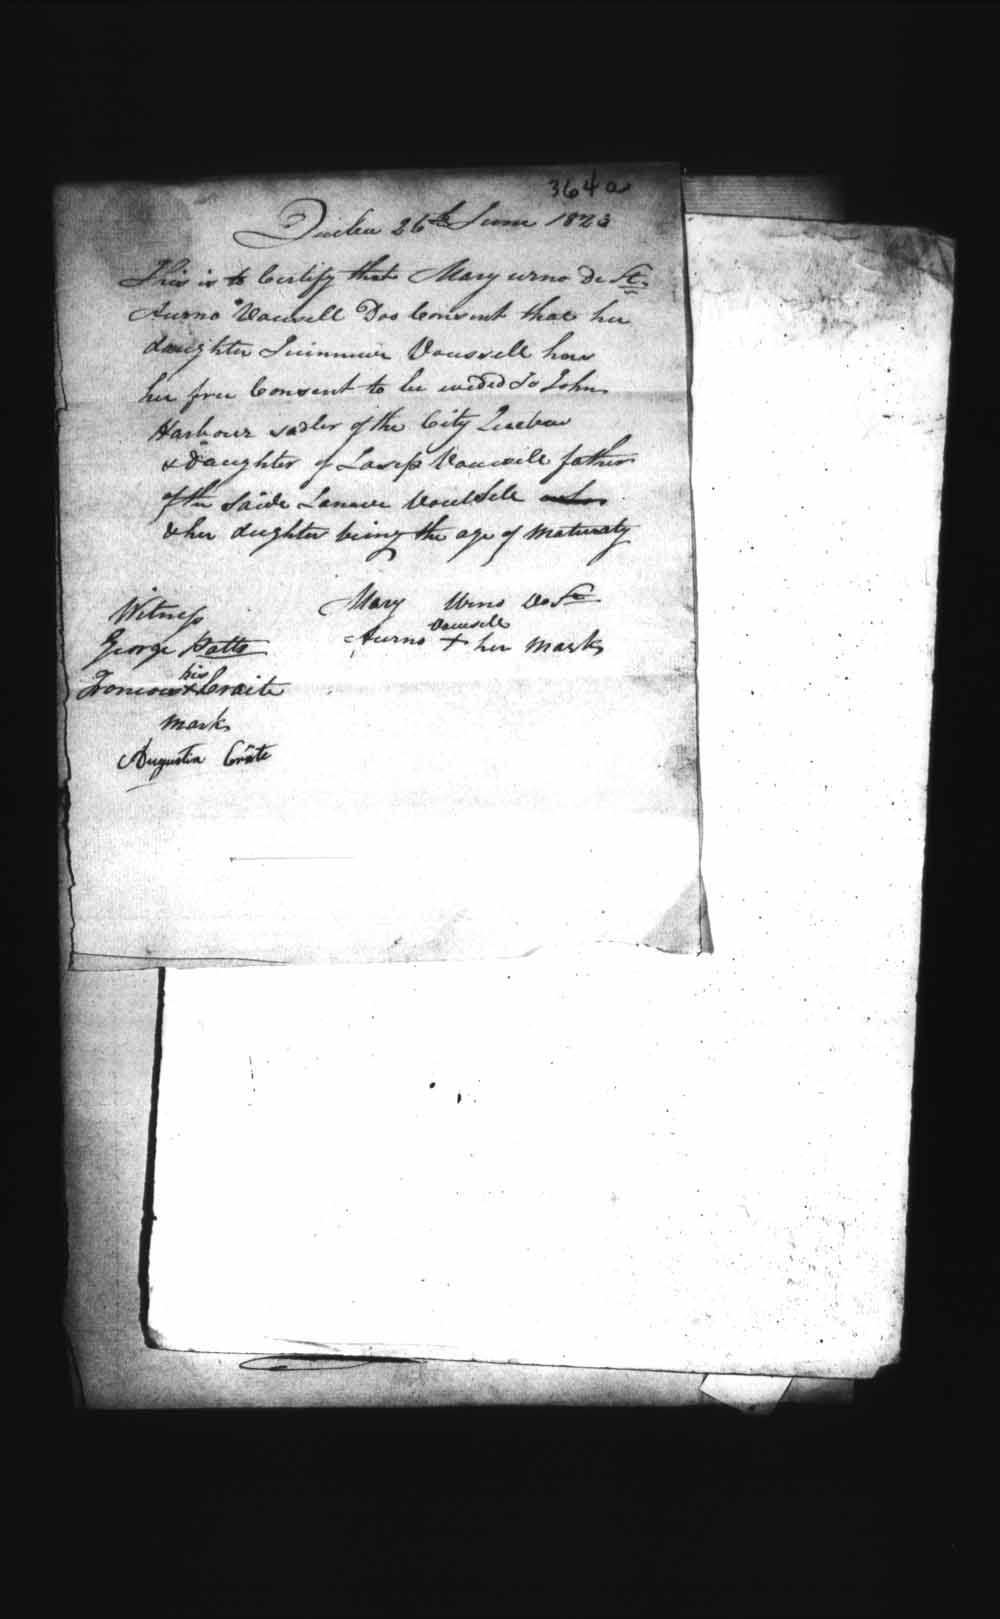 364a
26th June 1823
This is to Certify that Mary urno De St.
Aurno Vousell Dos Consent that her
daughter Vousell have
her free Consent to be weded To John
Harbour sadler of the City Quebec
& Daughter of Josep Vousell father
of the Saide Vousell
& her dughter being the age of maturaty
Witness
George Patte
his
Craite
mark
Augustin Crate
Mary Urno De St
Vousell
Aurno + her mark